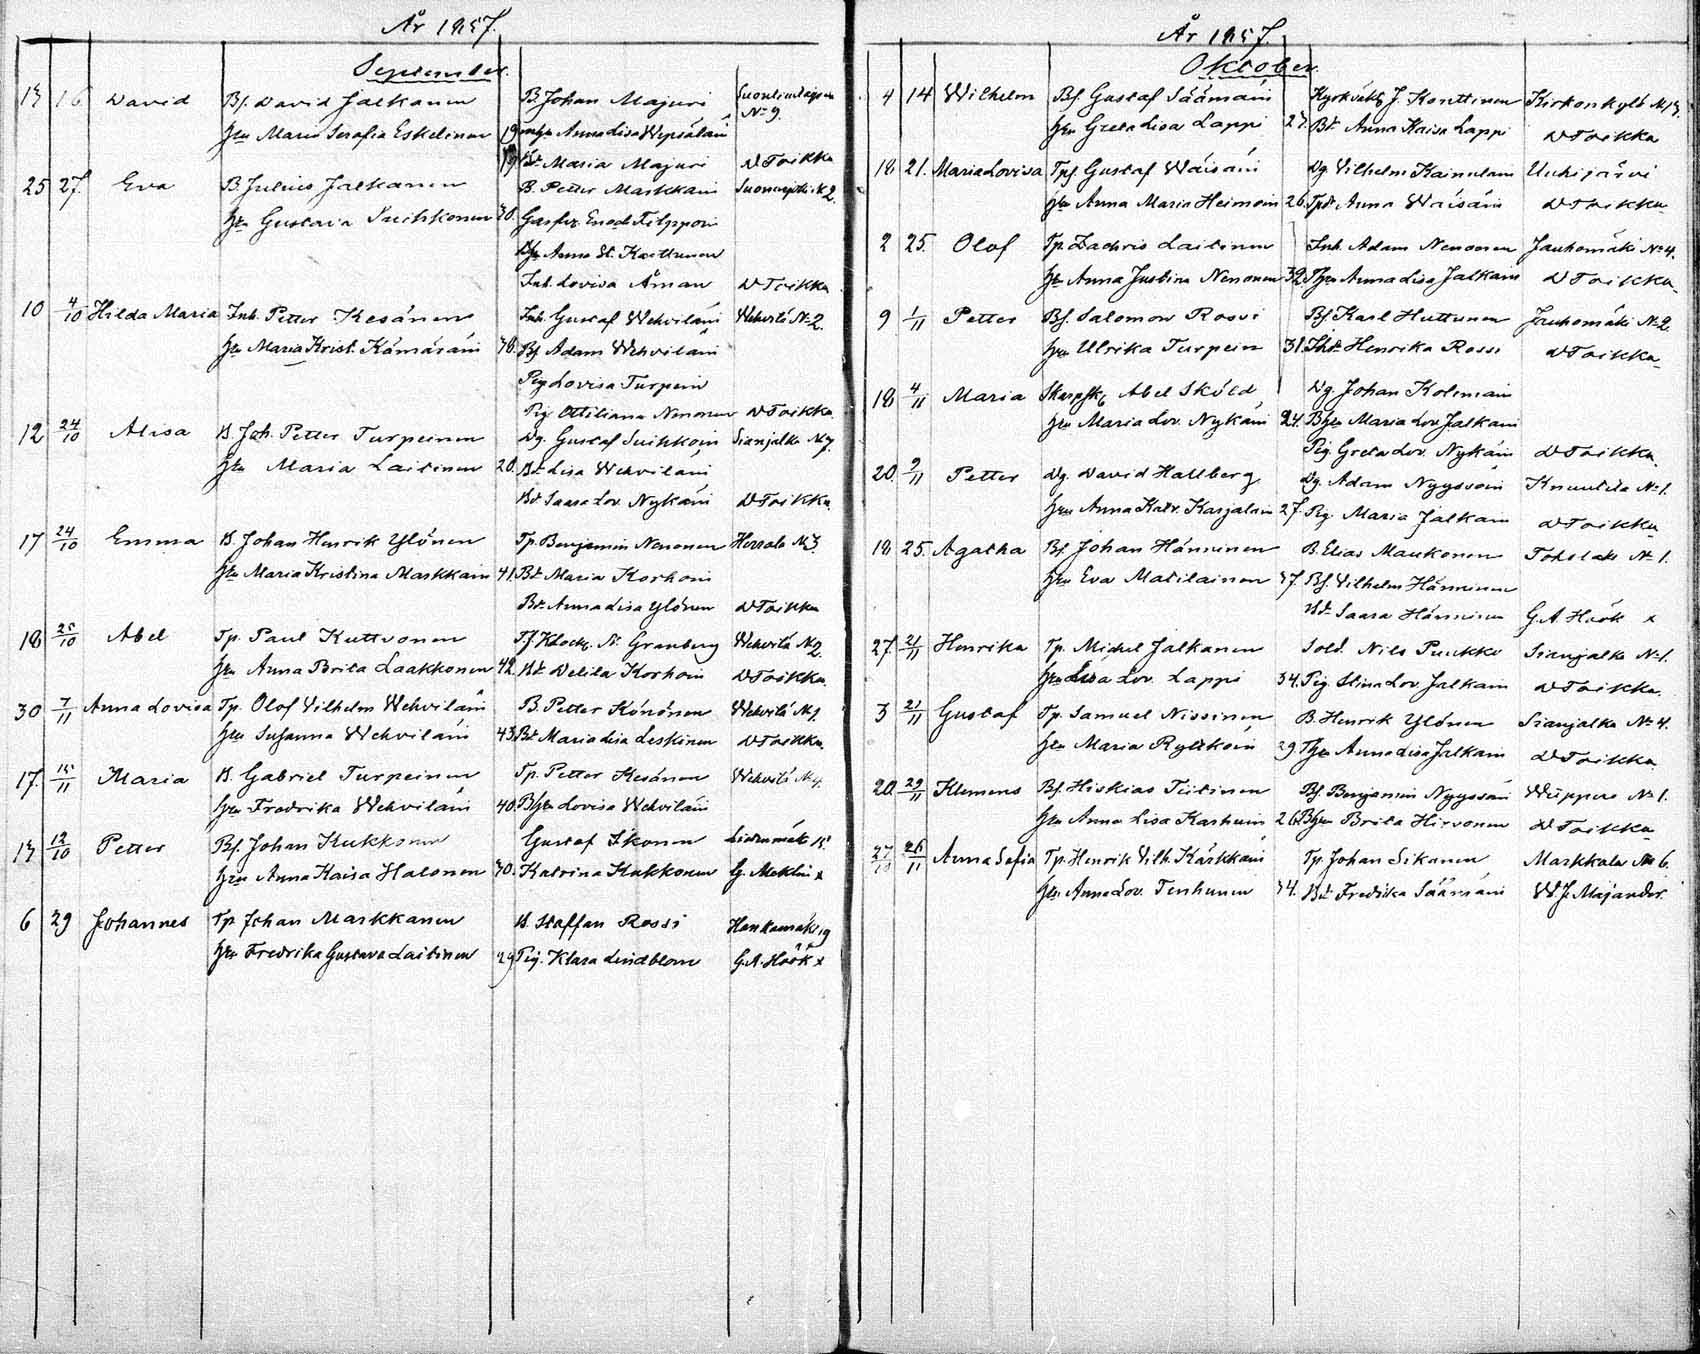 År 1857.
September.
13 16 David Bf. David Jalkanen B. Johan Majuri
Hu Maria Serafia Eskelinen 19 Anna Lisa Wepsäläin No 9.
Bt Maria Majuri D Toikka
25 27. Eva B. Julius Jalkanen B. Petter Markkain
Hu Gustava Suihkonen 30. Enoch Filppoin
Anna St. Karttunen
Inh. Lovisa Åman D Toikka
10 4/10 Hilda Maria Inh. Petter Kesänen Inh. Gustaf Wehviläin Wehvilä No 2.
Hu Maria Krist. Kämäräin 38. Bf Adam Wehviläin
Pig Lovisa Turpein
Pig Ottiliana Nenonen D Toikka
12 24/10 Alisa B. Joh. Petter Turpeinen Dg. Gustaf Suihkoin Sianjalka No 7.
Hu Maria Laitinen 20. Bt Lisa Wehviläin
Bt Saara Lov. Nykäin D Toikka
17 24/10 Emma B. Johan Henrik Ylönen Tp. Benjamin Nenonen Herrala No 3.
Hu Maria Kristina Markkain 41. Bt Maria Korhoin
Bt. Anna Lisa Ylönen D Toikka
18 25/10 Abel Tp. Paul Kuttvonen Granberg Wehvilä No 2.
Hu Anna Brita Laakkonen 42. Bt Delila Korhoin D Toikka.
30 7/11 Anna Lovisa Tp. Olof Vilhelm Wehviläin B. Petter Könönen Wehvilä No 1.
Hu Susanna Wehviläin 43. Bt Maria Lisa Leskinen D Toikka.
17. 15/11 Maria B. Gabriel Turpeinen Tp. Petter Kesänen Wehvilä No 4.
Hu Fredrika Wehviläin 40. Bhu Lovisa Wehviläin
13 12/10 Petter Bf. Johan Kukkonen Gustaf Ikonen
Hu Anna Kaisa Halonen 30. Katrina Kukkonen G. Meklin x
6 29 Johannes Tp Johan Markkanen B. Staffan Rossi Hankamäki 19
Hu Fredrika Gustava Laitinen 29 Pig. Klara Lindblom G. A. Höök x
År 1857.
Oktober.
4 14 Wilhelm Bf. Gustaf Säämäin J. Konttinen Kirkonkylä No 13.
Hu Greta Lisa Lappi 27. Bt Anna Kaisa Lappi D Toikka
18 21. Maria Lovisa Tpf. Gustaf Wäisäin Dg. Vilhelm Kainulain Uuhijärvi
Hu Anna Maria Heimoin 26. Tpdt Anna Wäisäin D Toikka
2 25. Olof Tp. Zachris Laitinen Inh. Adam Nenonen Jauhomäki No 4.
Hu Anna Justina Nenonen 32. Thu Anna Lisa Jalkain D Toikka
9 1/11 Petter Bf. Salomon Rossi Bf Karl Huttunen Jauhomäki No 2.
Hu Ulrika Turpein 31. Henrika Rossi D Toikka
18 4/11 Maria Skarpsk. Abel Sköld Dg. Johan Kolmain
Hu Maria Lov. Nykäin 24. Bhu Maria Lov. Jalkain
Pig. Greta Lov. Nykäin D Toikka.
20. 9/11 Petter Dg. David Hallberg Dg. Adam Nyyssöin Knuutila No 1.
Hu Anna Katr. Karjalain 27. Pig. Maria Jalkain D Toikka
18 25. Agatha Bf. Johan Hänninen B. Elias Maukonen No 1.
Hu Eva Matilainen 37. Bf. Vilhelm Hänninen
Bt. Saara Hänninen G. A Höök x
27. 21/11 Henrika Tp. Michel Jalkanen Sold. Nils Puukko Sianjalka No 1.
Hu Lisa Lov. Lappi 34. Pig. Stina Lov. Jalkain D Toikka.
3 21/11 Gustaf Tp. Samuel Nissinen B. Henrik Ylönen Sianjalka No 4.
Hu Maria Rytköin 29. Thu Anna Lisa Jalkain D Toikka
20. 29/11 Klemens Bf. Hiskias Tiitinen Bf Benjamin Nyyssöin No 1.
Hu Anna Lisa Karhuin 26. Bhu Brita Hirvonen D Toikka
27/10 26/11 Anna Sofia Tp. Henrik Vilh. Kärkkäin Tp. Johan Sikanen Markkala No 6.
Hu Anna Lov. Tenhunen 34. Bt Fredrika Säämäin W. J. Majander.